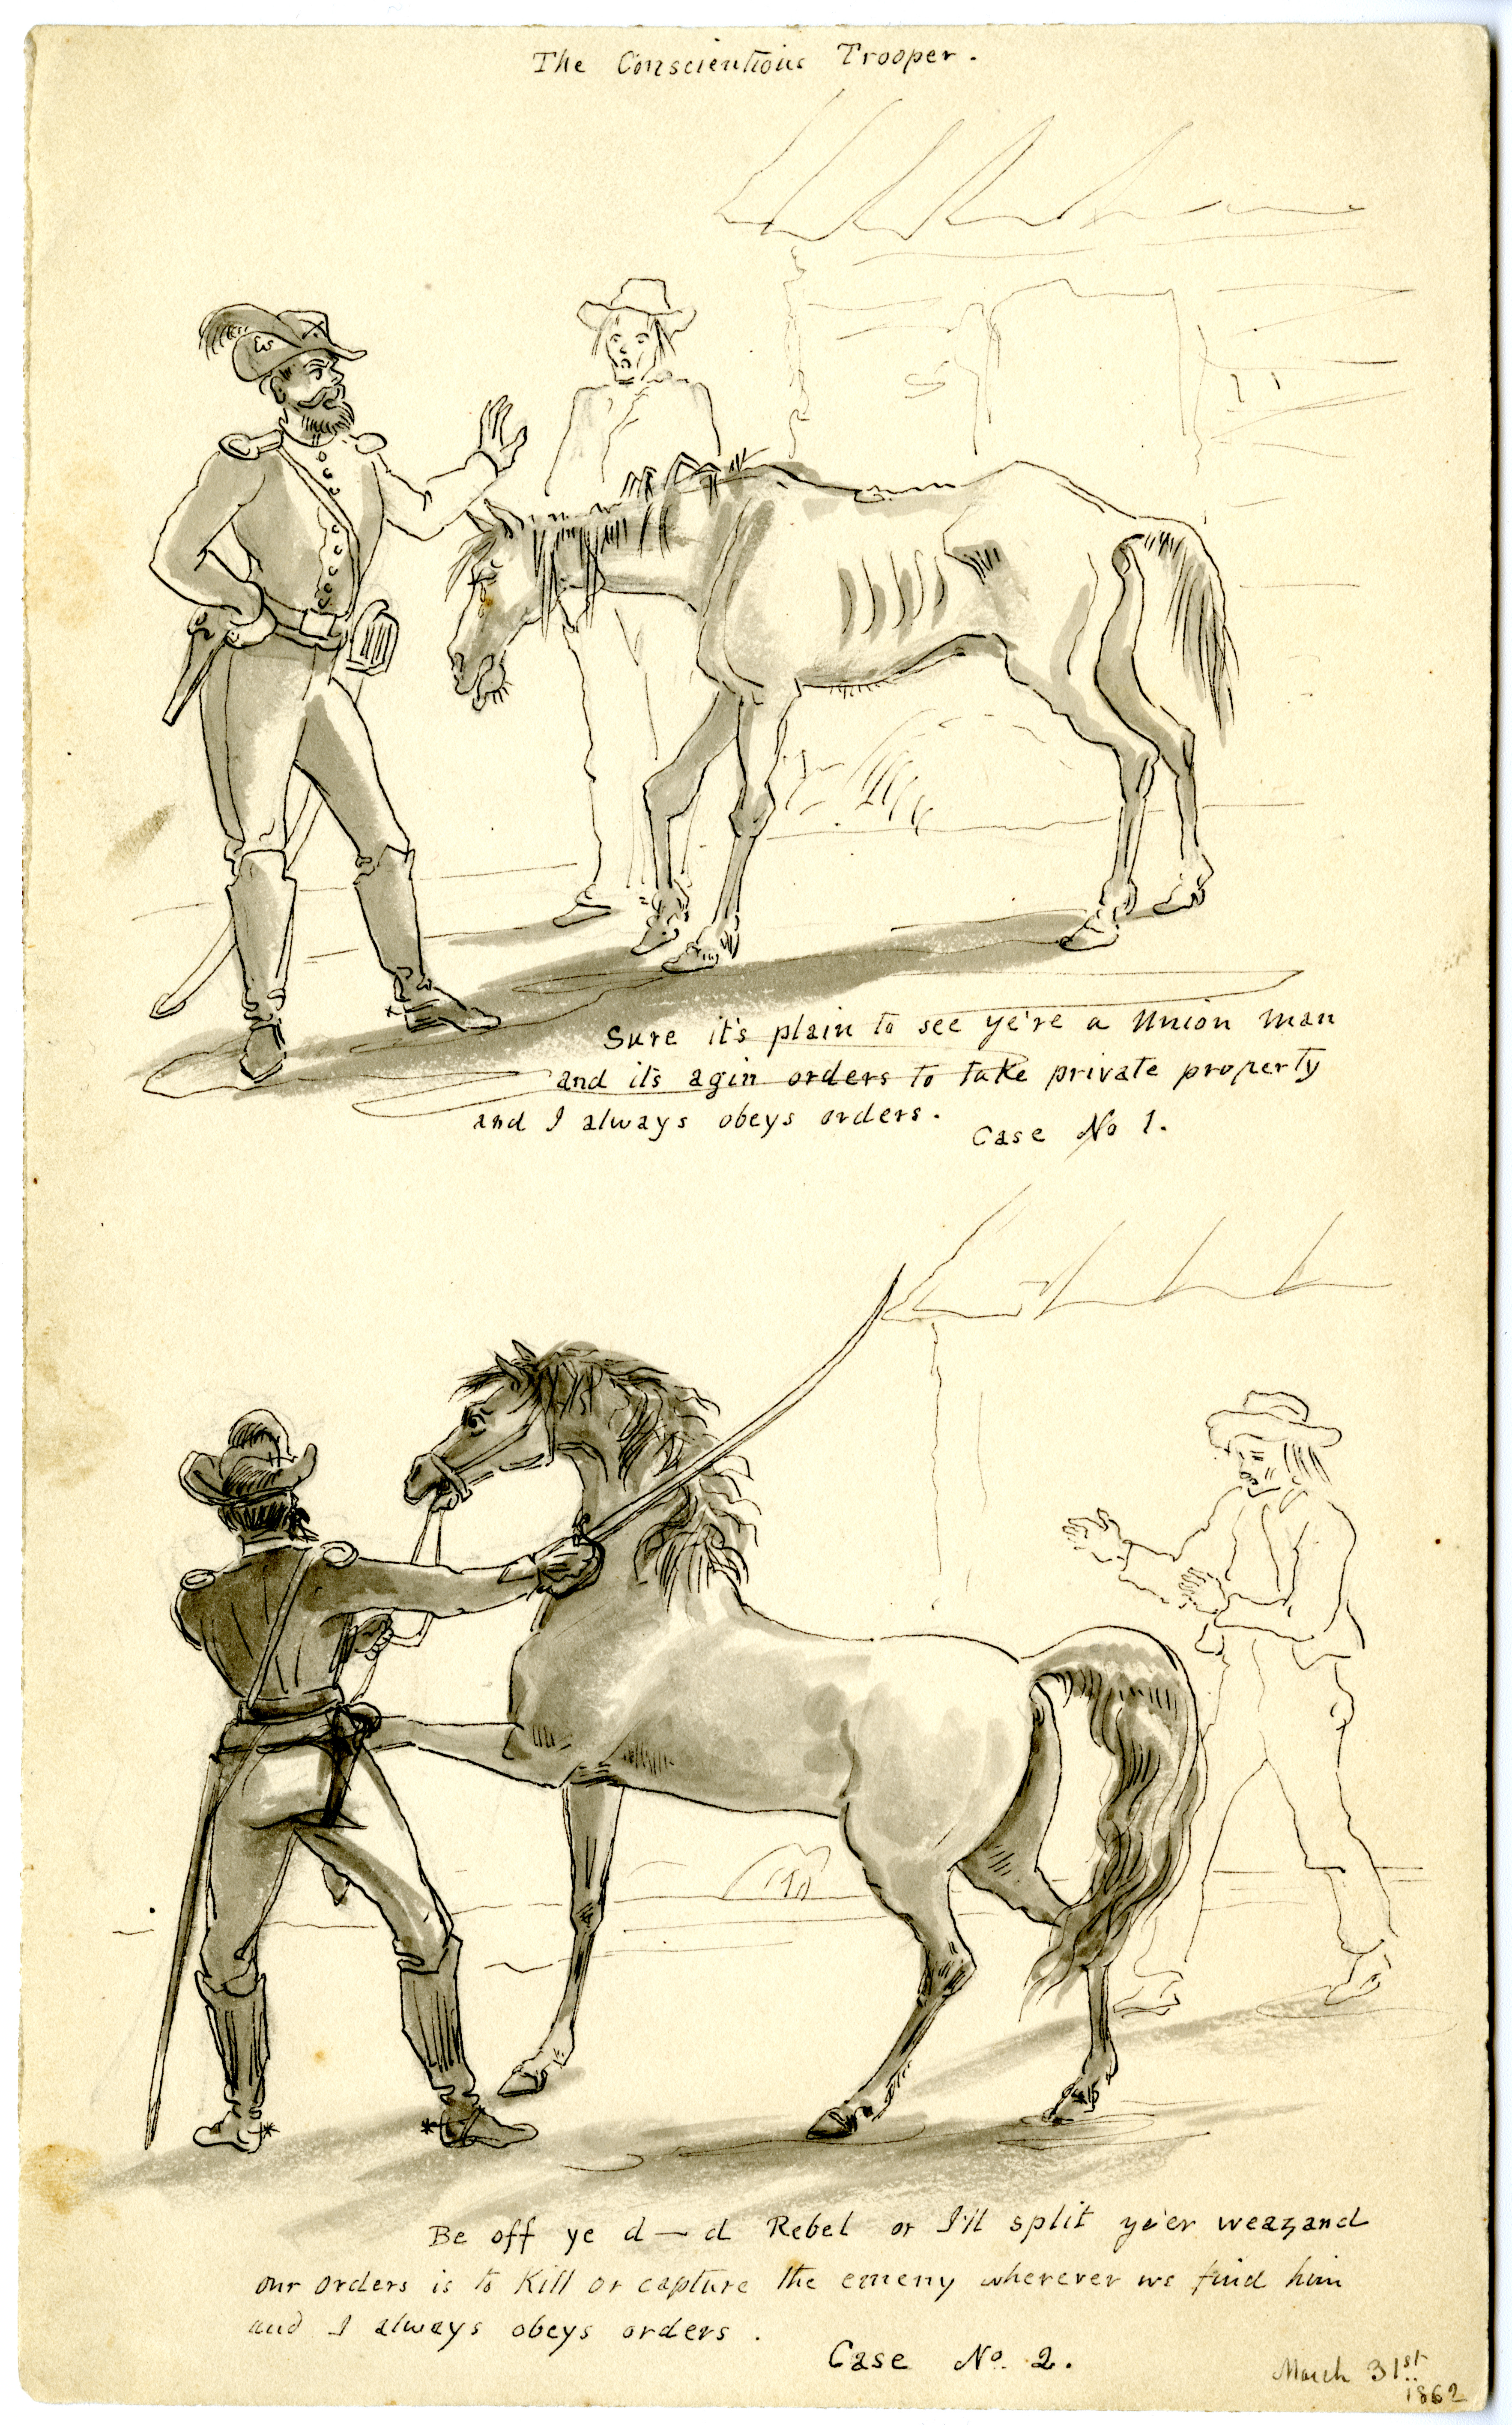 The Conscientious Trooper.
Sure it's plain to see ye're a Union man
and it's agin orders to take private property
and I always obeys orders.
Case No 1.
Be off ye d—d Rebel or I'll split ye'er weazand
our orders is to Kill or capture the emeny wherever we find him
and I always obeys orders.
Case No. 2.
March 31st
1862